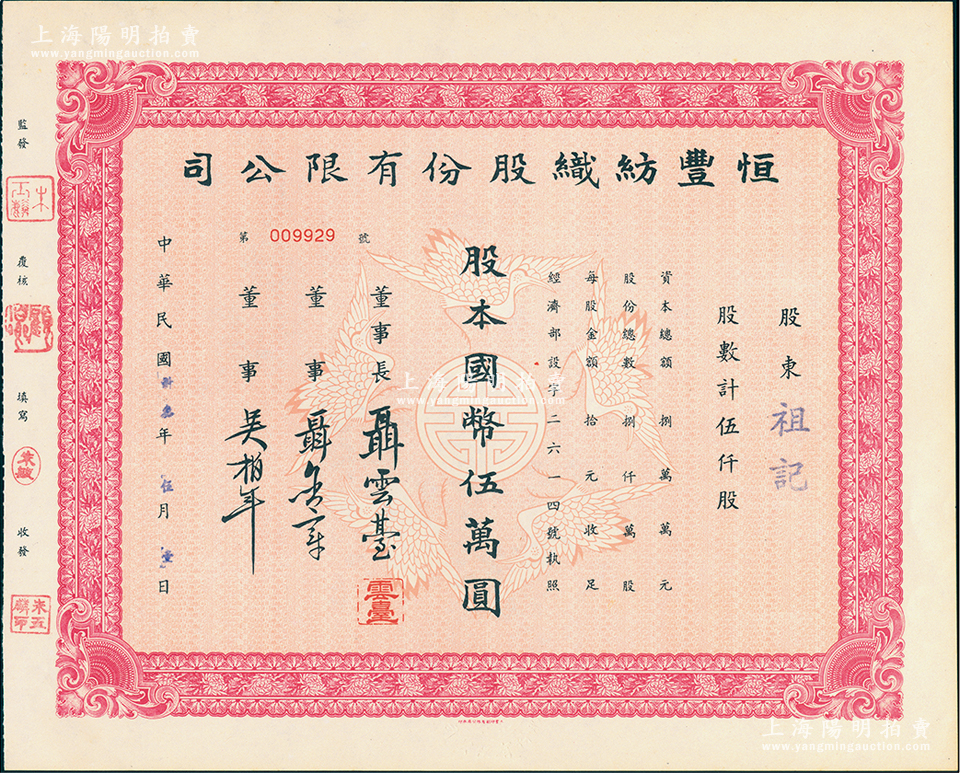 上海陽明拍賣
www.yangmingauction.com
恒豐紡織股份有限公司
股東 祖記
股數計伍仟股
資本總額捌萬萬元
股份總數捌仟萬股
每股金額拾元收足
經濟部設字二六一四號執照
股本國幣伍萬圓
第 009929 號
董事長 聶雲臺
雲臺
董事 聶
董事 吳柏年
中華民國卅 年伍月壹日
監發
覆核
填寫
收發
上海陽明拍賣
www.yangmingauction.com
上海陽明拍賣
www.yangmingauction.com